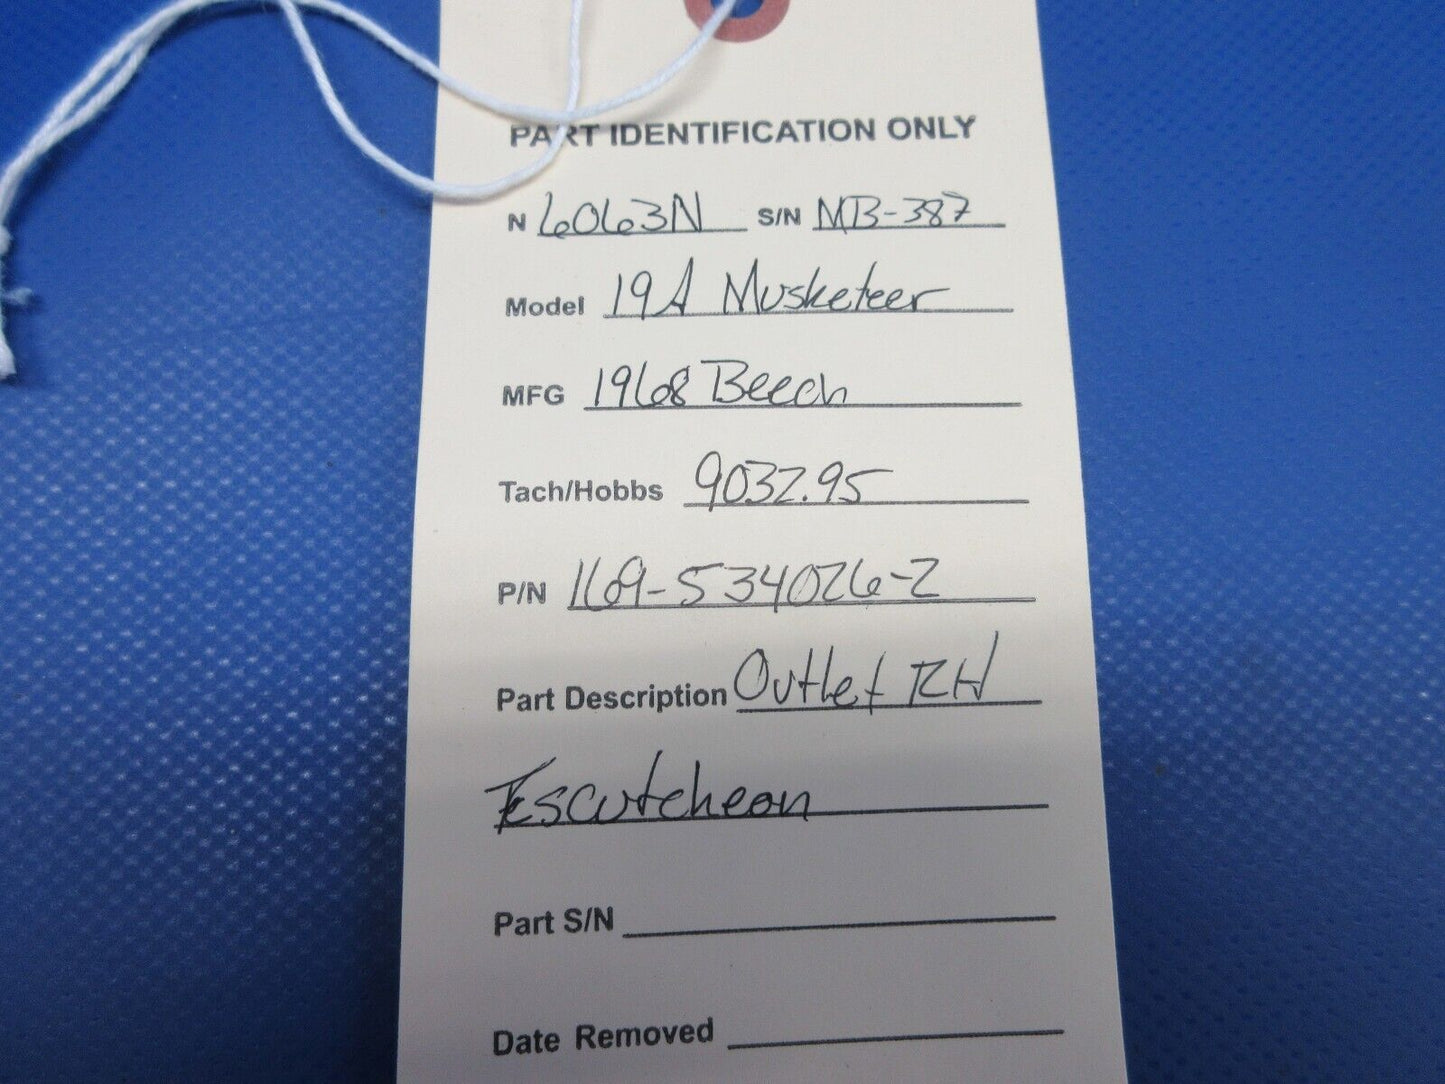 PART IDENTIFICATION ONLY
N 6063N S/N MB-387
Model 19A Musketeer
MFG 1968 Beech
Tach/Hobbs 9032.95
P/N 169-534026-2
Part Description Outlet RH
Escutcheon
Part S/N
Date Removed